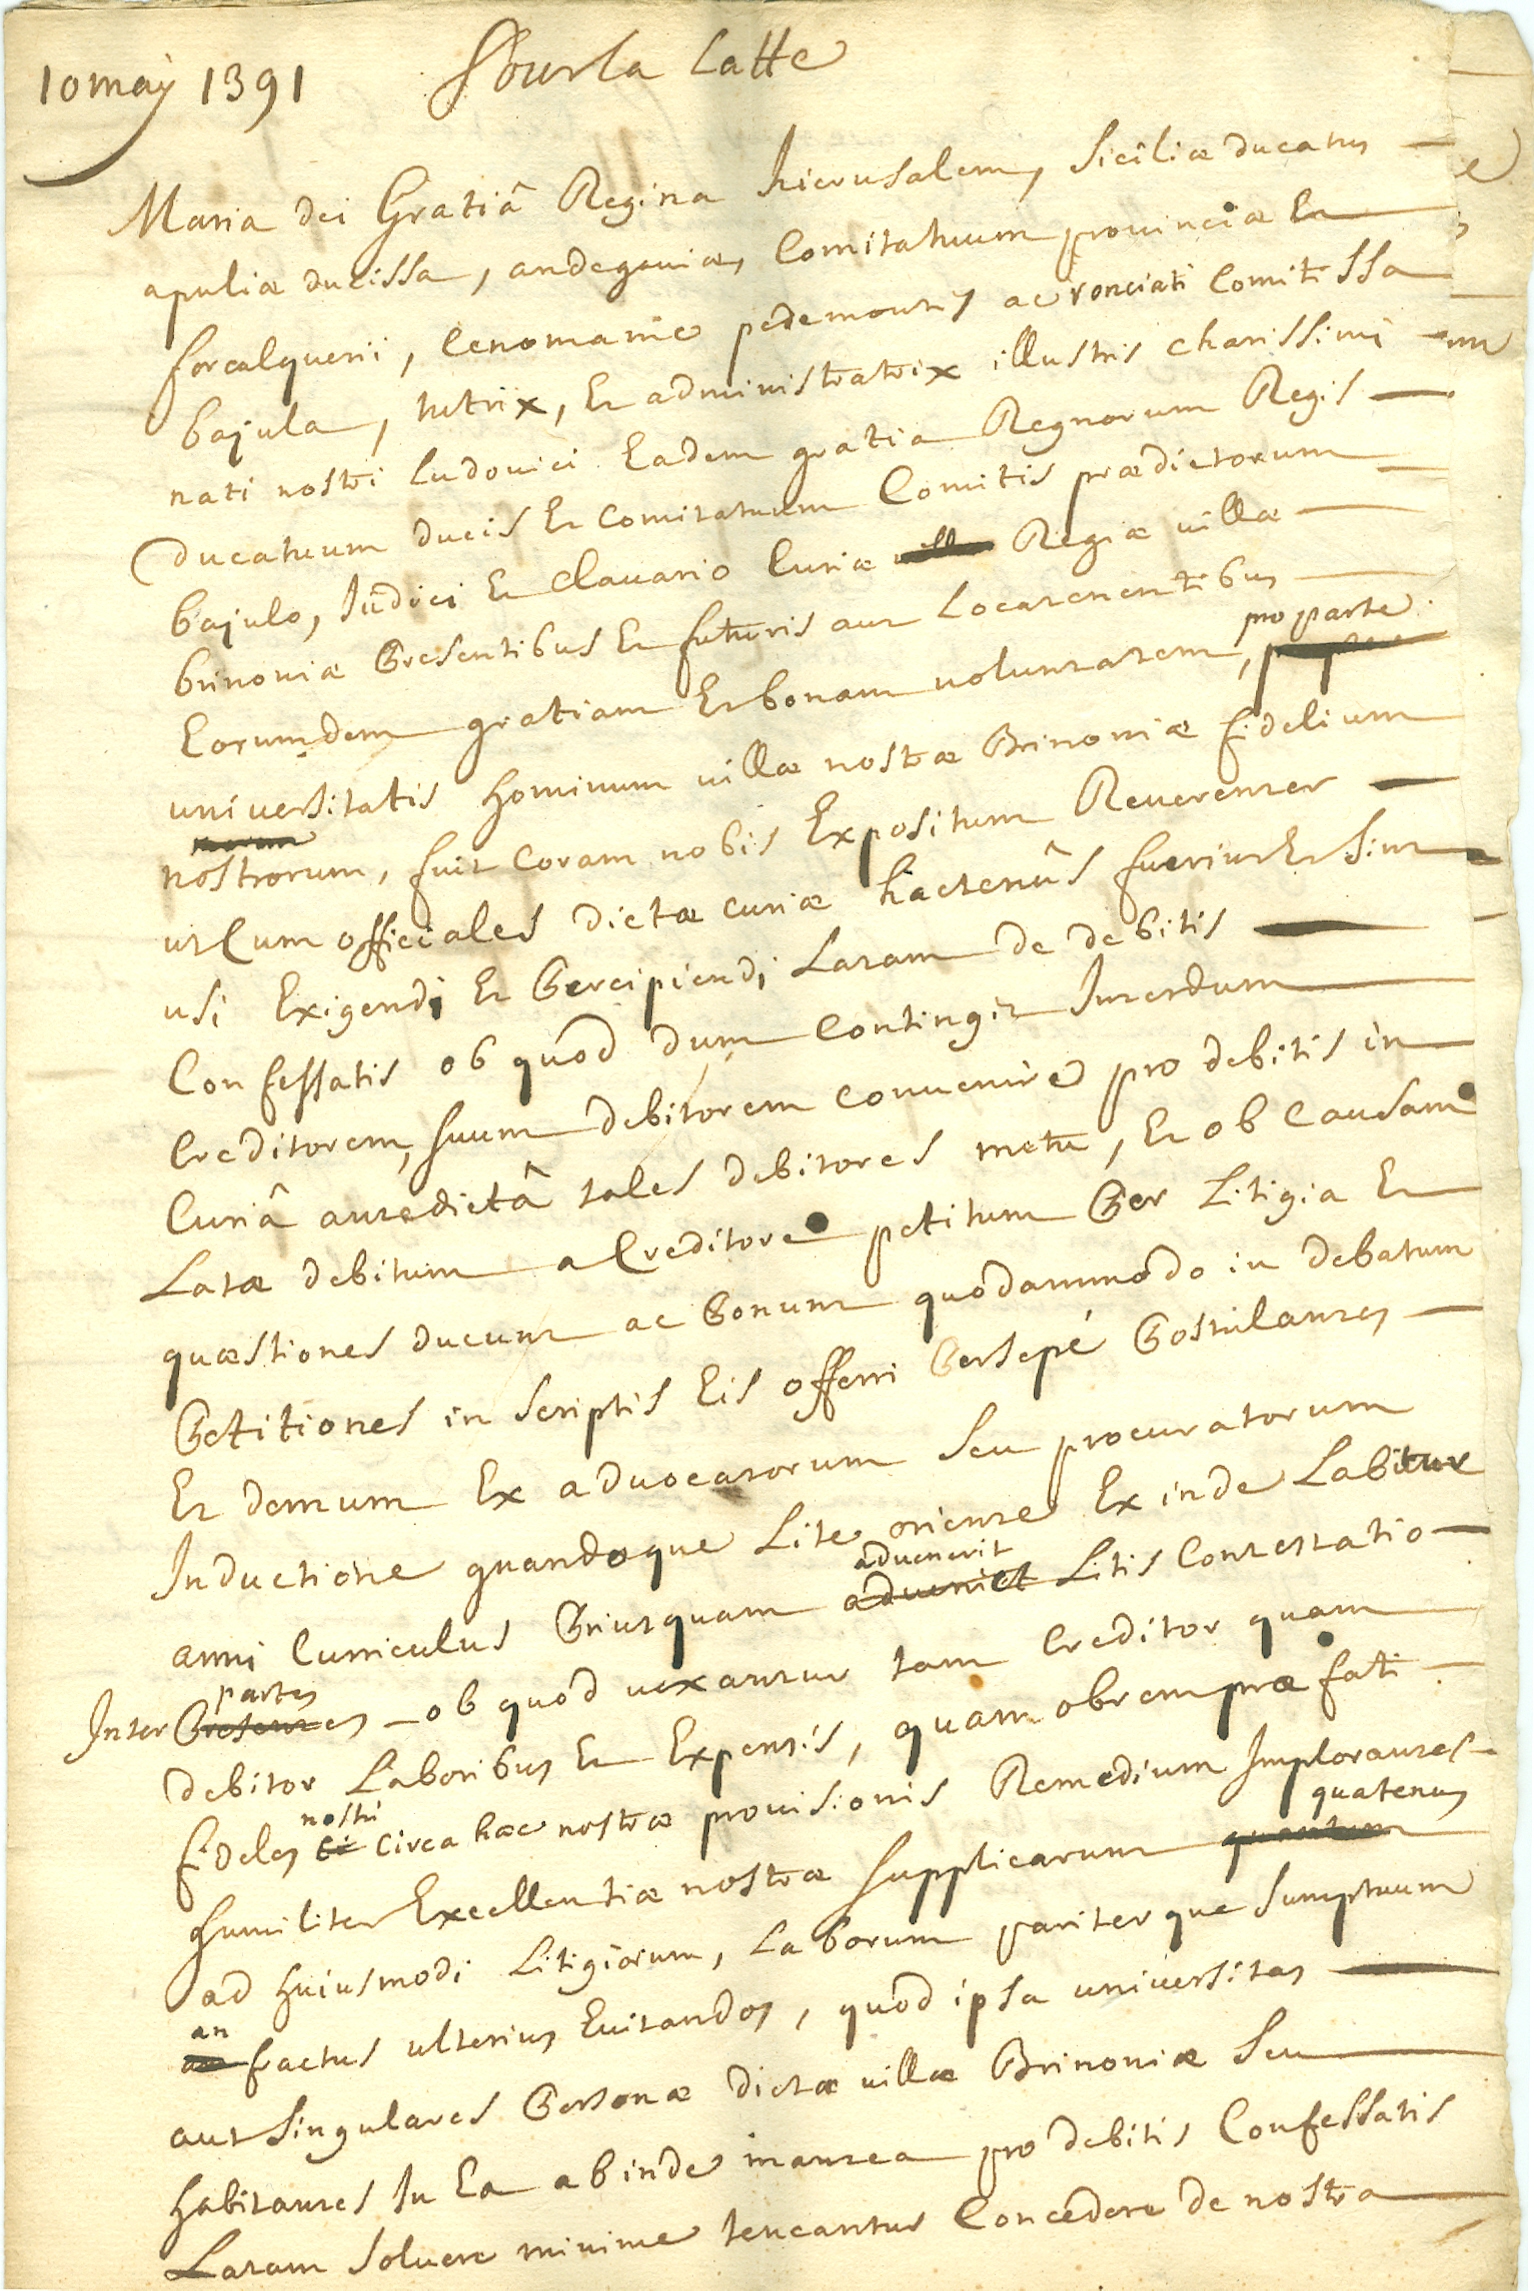 10 may 1391 Pour la Latte
Maria dei Gratiâ Regina hierusalem, Siciliæ ducatus
apuliæ ducissa, andegaviæ, Comitatuum provinciæ Et
forcalquerii, Cenomaniæ pedemontis ac ronciati Comitissa
bajula, tutrix, Et administratrix illustris charissimi
nati nostri Ludovici Eadem gratia Regnorum Regis
ducatuum ducis Et comitatuum Comitis prædictorum
bajulo, Iudici Et Clavario Curiæ Regiæ villæ
brinoniæ Presentibus Et futuris aut Locatenentibus
pro parte
Eorumdem gratiam Et bonam voluntatem,
universitatis hominum villæ nostræ Brinoniæ fidelium
nostrorum, fuit coram nobis Expositum Reverenter
ut Cum officiales dictæ curiæ hactenûs fuerint Et sint
usi Exigendi Et Percipiendi Latam de debitis
Confessatis ob quod dum Contingit Interdum
Creditorem, suum debitorem convenire pro debitis in
Curiâ antedictâ tales debitores metu, Et ob Causam
Latæ debitum a Creditore petitum Per Litigia Et
quæstiones ducunt ac Ponunt quodammodo in debatum
Petitiones in scriptis Eis offerri Persepé Postulantes
Et demum Ex advocatorum seu procuratorum
Inductione quandoque Lite oriente Ex inde Labitur
advenerit
anni Curriculus Priusquam adveniet Litis Contestatio
partes
Inter Presentes ob quod vexantur tam Creditor quam
debitor Laboribus Et Expensis, quam obrem præfati
nostri
fideles circa hæc nostræ provisionis Remedium Implorantes
quatenus
humiliter Excellentiæ nostræ supplicarunt quantum
ad huiusmodi Litigiorum, Laborum pariterque sumptuum
an
fractus ulterius Evitandos, quod ipsa universitas
aut singulares Personæ dictæ villæ Brinoniæ seu
habitantes In Ea ab inde in antea pro debitis Confessatis
Latam solvere minime teneantur Concedere de nostra